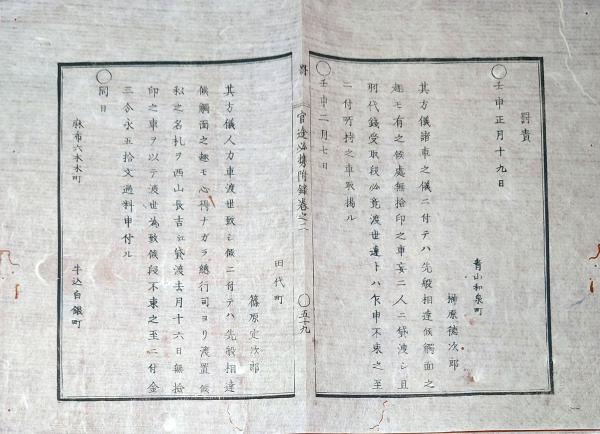 罸責
○壬申正月十九日
青山和泉町
榊原徳次郎
其方儀諸車之儀ニ付テハ先般相達候觸面之
趣モ有之候處無撿印之車妄ニ人ニ貸渡シ且
羽代錢受取段必竟渡世違トハ乍申不束之至
ニ付所持之車取揚ル
○壬申二月七日
官途必携附録巻之二
○五十九
田代町
篠原定次郎
其方儀人力車渡世致シ候ニ付テハ先般相達
候觸面之趣モ心得ナガラ總行司ヨリ渡置候
私之名札ヲ西山長吉江貸渡去月十六日無撿
印之車ヲ以テ渡世為致候段不束之至ニ付金
三分永五拾文過料申付ル
○同日
麻布六本木町
牛込白銀町